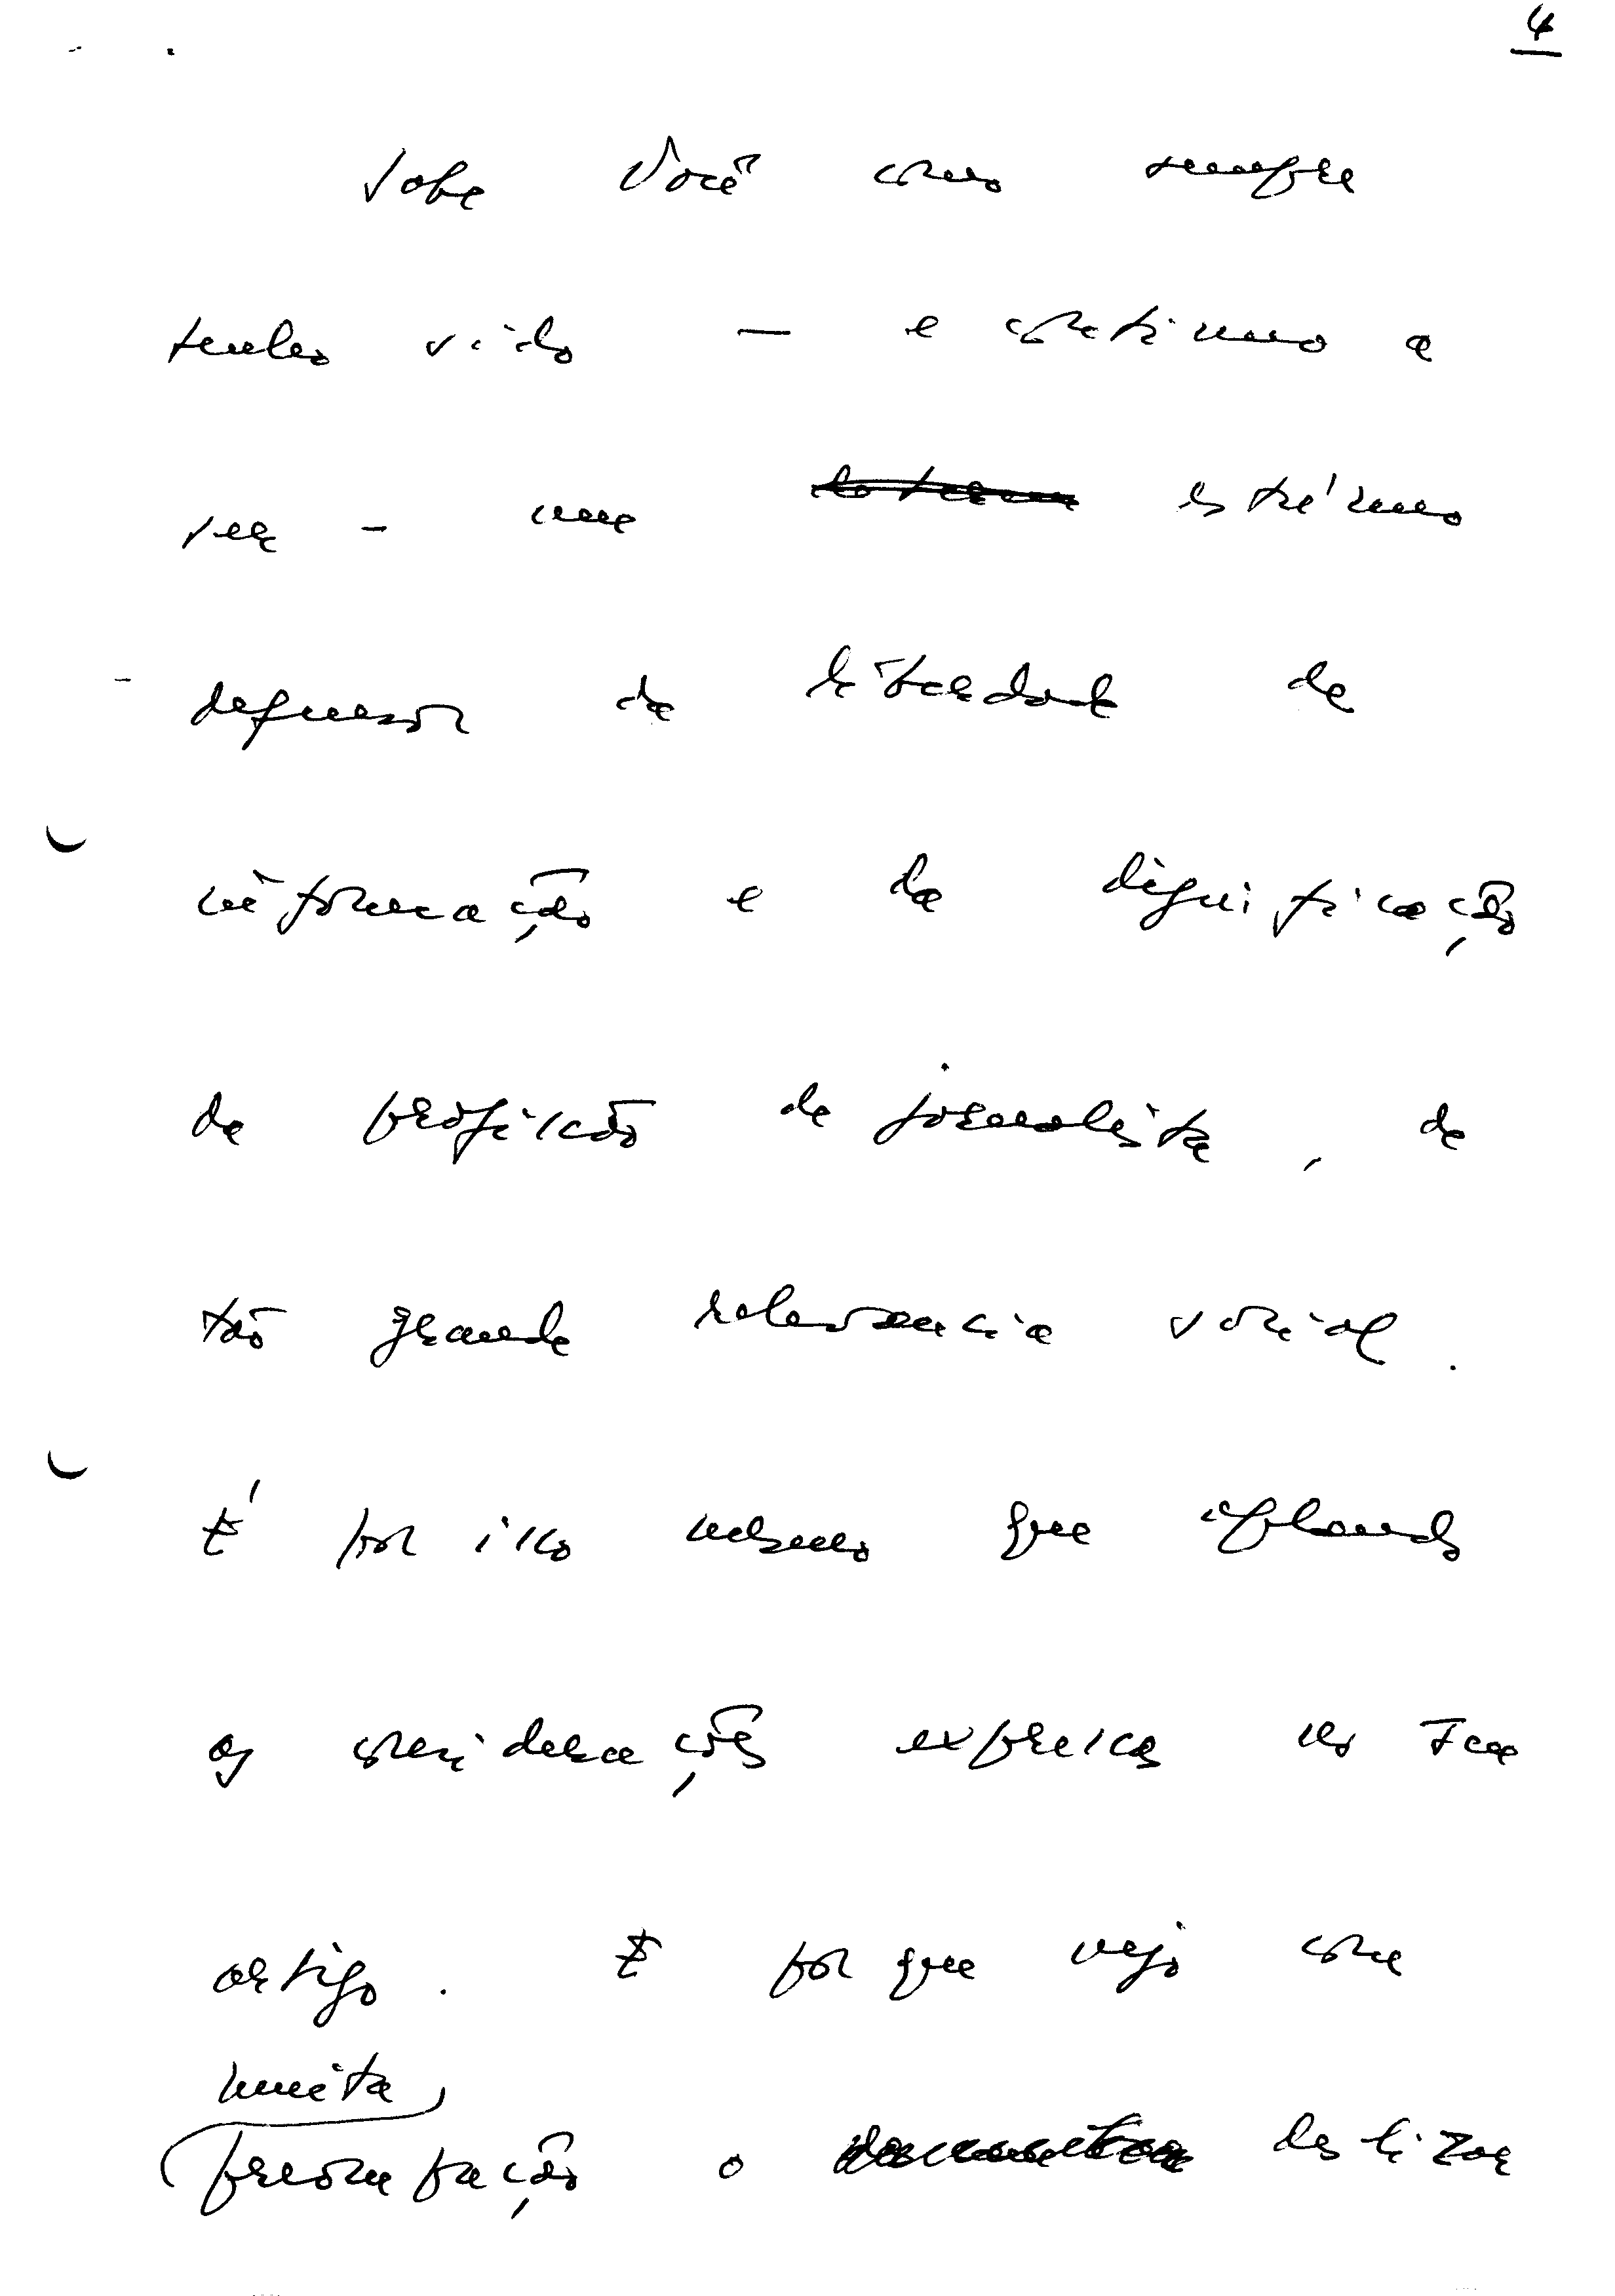 4
Sabe Você como sempre
tenho sido — e continuo a
ser – um estrénuo
defensor da liberdade de
informação e da dignificação
da profissão de jornalista, de
tão grande relevancia social.
É por isso mesmo que aplaudo
as considerações expressas no seu
artigo. E porque vejo com
muita
preocupação o deslizar